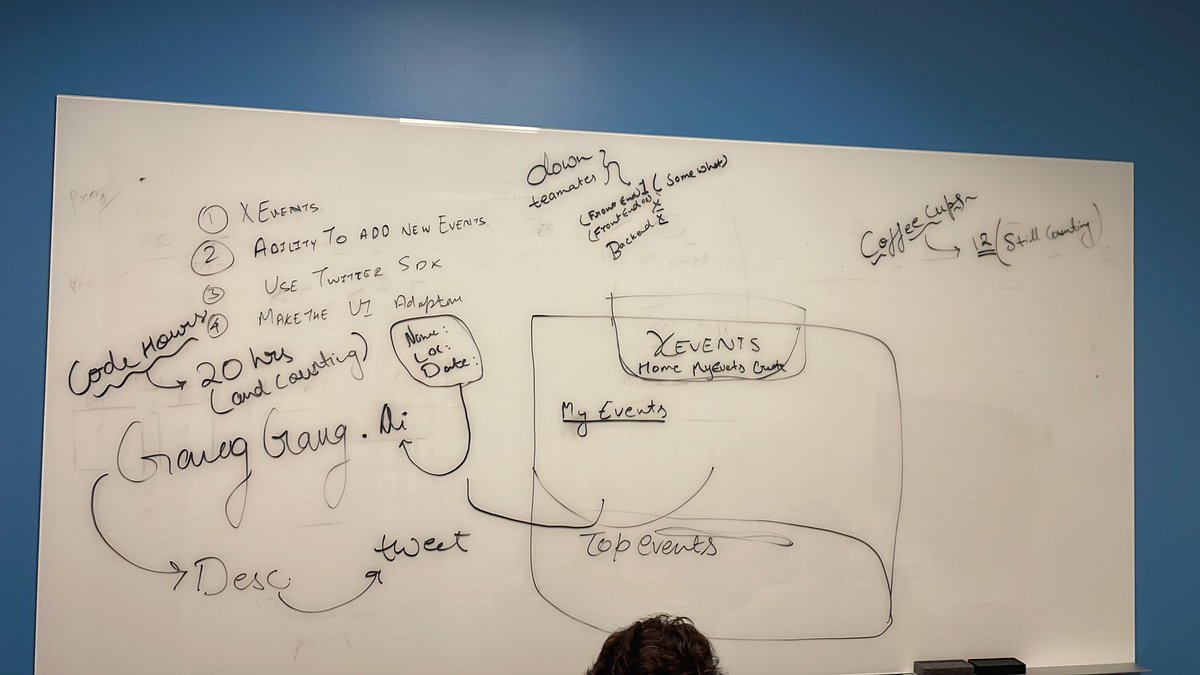 ① X EVENTS
② ABILITY TO ADD NEW EVENTS.
③ USE TWITTER SDK
④ MAKE THE UI
Code Hours
20 hrs
(and counting)
Name:
Loc:
Date:
Gang . Ai
Desc
tweet
down
teamates
(Front End 1 (Somewhat)
Backend
Coffee Cups
12 (Still Counting)
XEVENTS
Home MyEvets
My Events
Top events